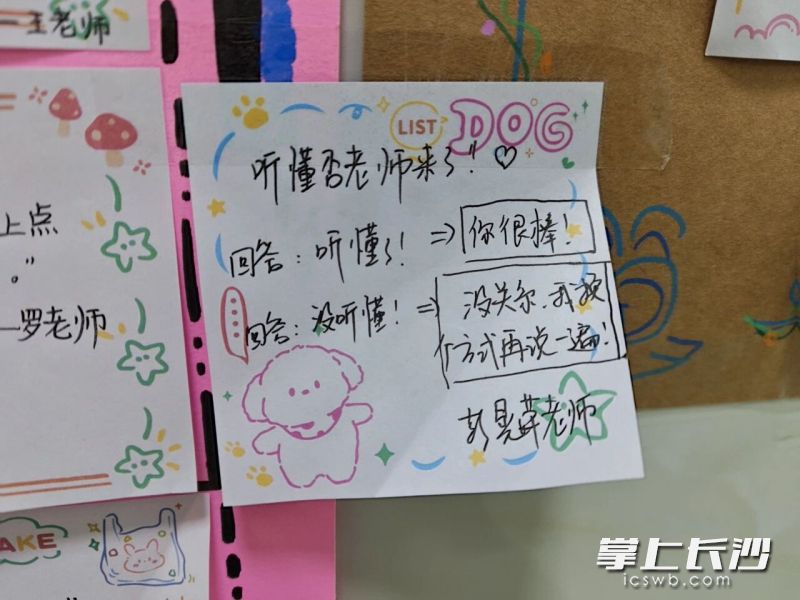 王老师
上点
。”
罗老师
LIST DOG
听懂否老师来了! ♡
回答: 听懂了! ⇒ 你很棒!
回答: 没听懂! ⇒ 没关尔.我换
个方式再说一遍!
老师
AKE
掌上长沙
icswb.com